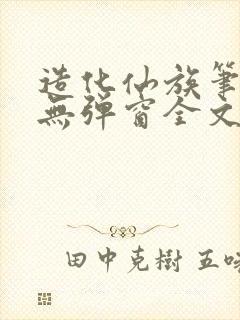 造化仙族筆
無彈窗全文
田中克樹 五味